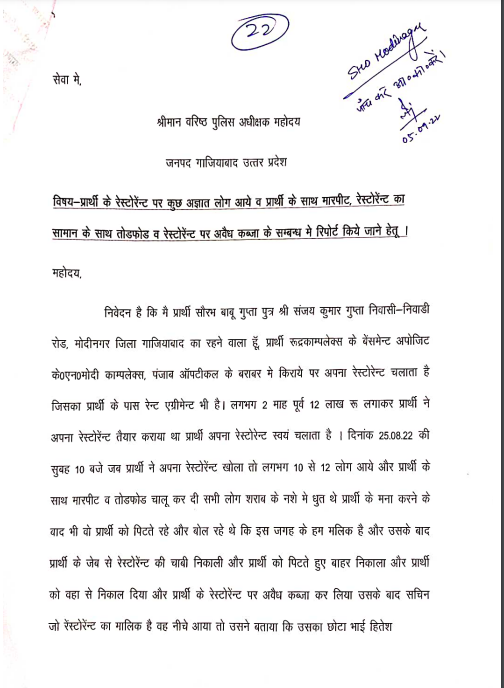 22
SHO Modinagar
जाँच करें
05.09.22
सेवा मे,
श्रीमान वरिष्ठ पुलिस अधीक्षक महोदय
जनपद गाजियाबाद उत्तर प्रदेश
विषय–प्रार्थी के रेस्टोरेंन्ट पर कुछ अज्ञात लोग आये व प्रार्थी के साथ मारपीट, रेस्टोरेंन्ट का
सामान के साथ तोडफोड व रेस्टोरेंन्ट पर अवैध कब्जा के सम्बन्ध मे रिपोर्ट किये जाने हेतू ।
महोदय,
निवेदन है कि मै प्रार्थी सौरभ बाबू गुप्ता पुत्र श्री संजय कुमार गुप्ता निवासी–निवाडी
रोड, मोदीनगर जिला गाजियाबाद का रहने वाला हूँ, प्रार्थी रूद्रकाम्पलेक्स के बेंसमेन्ट अपोजिट
के0एन0मोदी काम्पलेक्स, पंजाब ऑपटीकल के बराबर मे किराये पर अपना रेस्टोरेन्ट चलाता है
जिसका प्रार्थी के पास रेन्ट एग्रीमेन्ट भी है। लगभग 2 माह पूर्व 12 लाख रू लगाकर प्रार्थी ने
अपना रेस्टोरेंन्ट तैयार कराया था प्रार्थी अपना रेस्टोरेन्ट स्वयं चलाता है । दिनांक 25.08.22 की
सुबह 10 बजे जब प्रार्थी ने अपना रेस्टोरेंन्ट खोला तो लगभग 10 से 12 लोग आये और प्रार्थी के
साथ मारपीट व तोडफोड चालू कर दी सभी लोग शराब के नशे मे धुत थे प्रार्थी के मना करने के
बाद भी वो प्रार्थी को पिटते रहे और बोल रहे थे कि इस जगह के हम मलिक है और उसके बाद
प्रार्थी के जेब से रेस्टोरेंन्ट की चाबी निकाली और प्रार्थी को पिटते हुए बाहर निकाला और प्रार्थी
को वहा से निकाल दिया और प्रार्थी के रेस्टोरेंन्ट पर अवैध कब्जा कर लिया उसके बाद सचिन
जो रेंस्टोरेन्ट का मालिक है वह नीचे आया तो उसने बताया कि उसका छोटा भाई हितेश